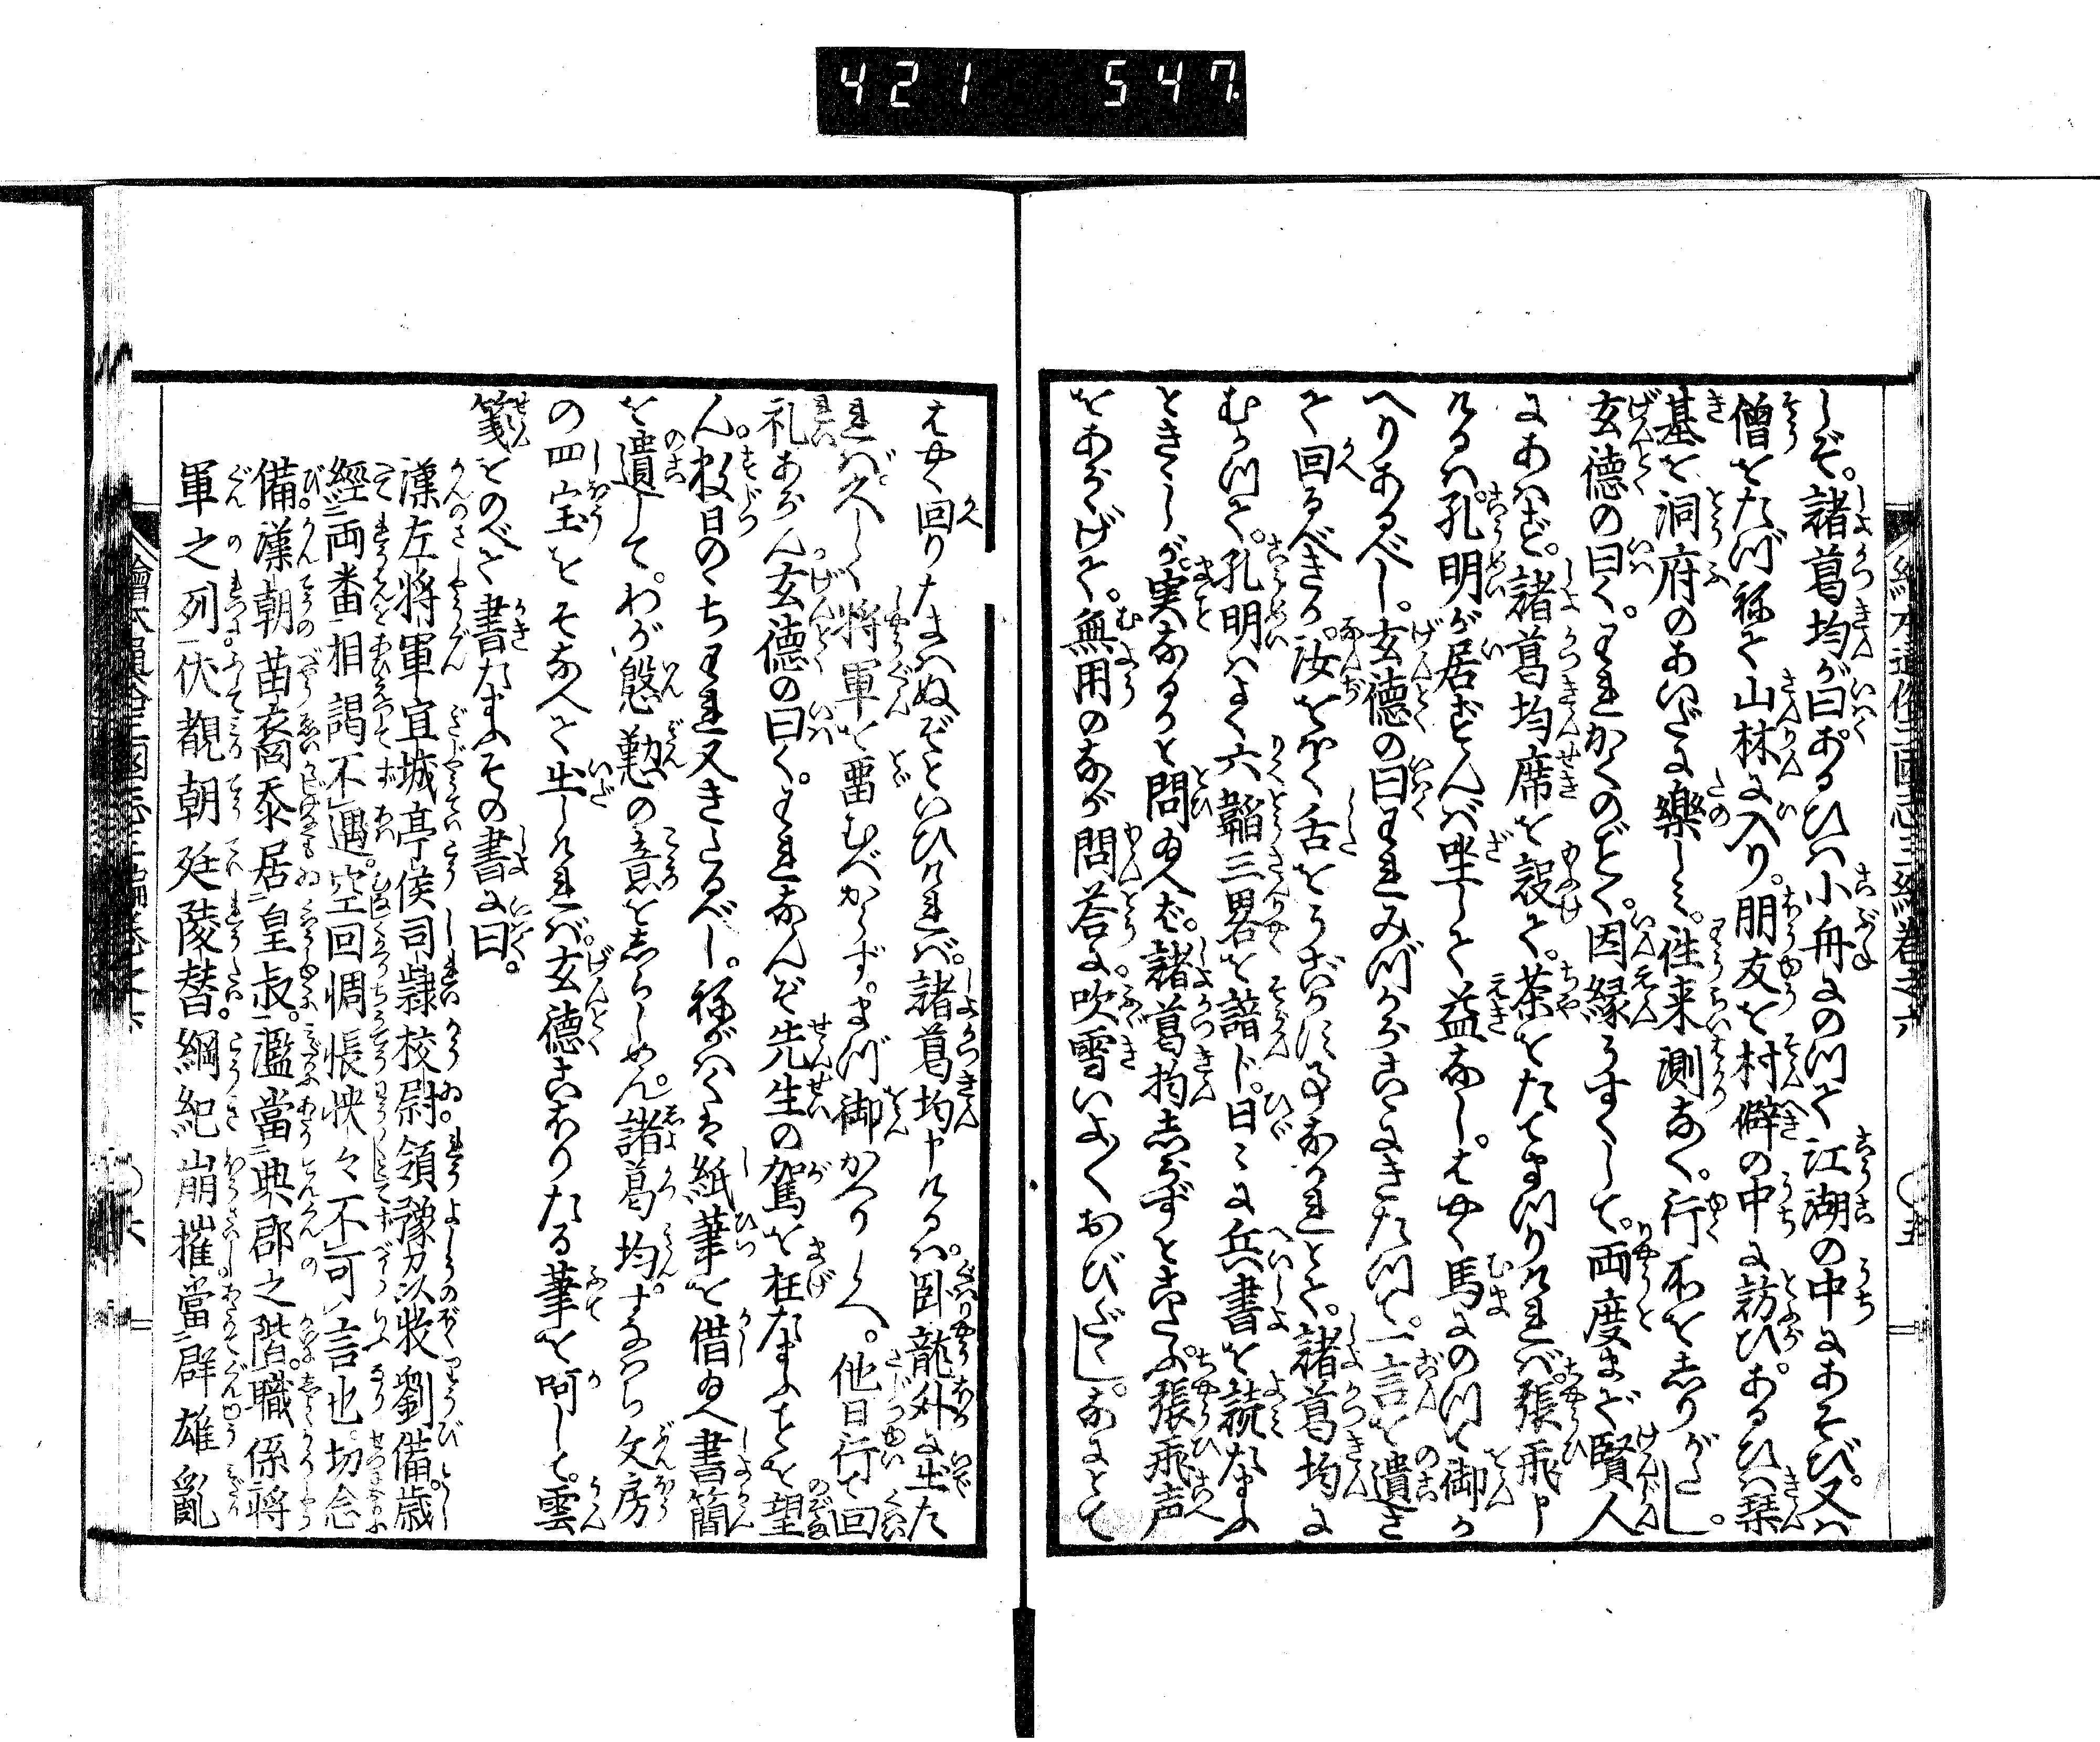 421 547
繪本通俗三國志三編卷之六 〇五
しぞ。諸葛均が曰あるひハ小舟にのつて江湖の中にあそび。又ハ
僧をたづねて山林に入り。朋友を村僻の中に訪ひ。あるひハ琴
基を洞府のあいだに樂しミ。往来測なく。行所をしりがたし。
玄德の曰く。われかくのごとく。因縁うすくして。両度まで賢人
にあハざと。諸葛均席を設て。茶をたてまつりけれバ。張飛申
けるハ。孔明が居ざんバ坐して益なし。はやく馬にのつて御か
へりあるべし。玄德の曰われみづからこゝにきたつて。一言を遺さ
で回るべきか。汝をバく舌をうごかすことなかれとて。諸葛均に
むかつて。孔明ハよく六韜三畧を諳ド。日〻に兵書を読たまふ
ときくが実なるかと問ゐへバ。諸葛均しらずとこたふ。張飛声
をあらげて。無用のなが問荅に。吹雪いよ〱おびたゞし。なにとて
はやく回りたまハぬぞといひけれバ。諸葛均申けるハ。臥龍外に出た
れバ。久しく将軍を畱むべからず。まづ御かへりしへ。他日行て回
礼あらん玄德の曰く。われなんぞ先生の駕を枉たまふことを望
ん。數日のゝちわれ又きたるべし。ねがハくは紙筆を借ゐへ書簡
を遺して。わが慇懃の意をしらしめん。諸葛均。すなハち文房
の四宝をそなへて出しけれバ。玄德こほりたる筆を呵して。雲
箋をのべて書たまふその書に曰。
漢左将軍宜城亭侯司隷校尉領豫刕牧劉備。歳
經両番相謁不遇。空回惆悵怏々不可言也。切念
備漢朝苗裔忝居皇叔。濫當典郡之階。職係将
軍之列伏覩朝廷陵替。綱紀崩摧當群雄亂